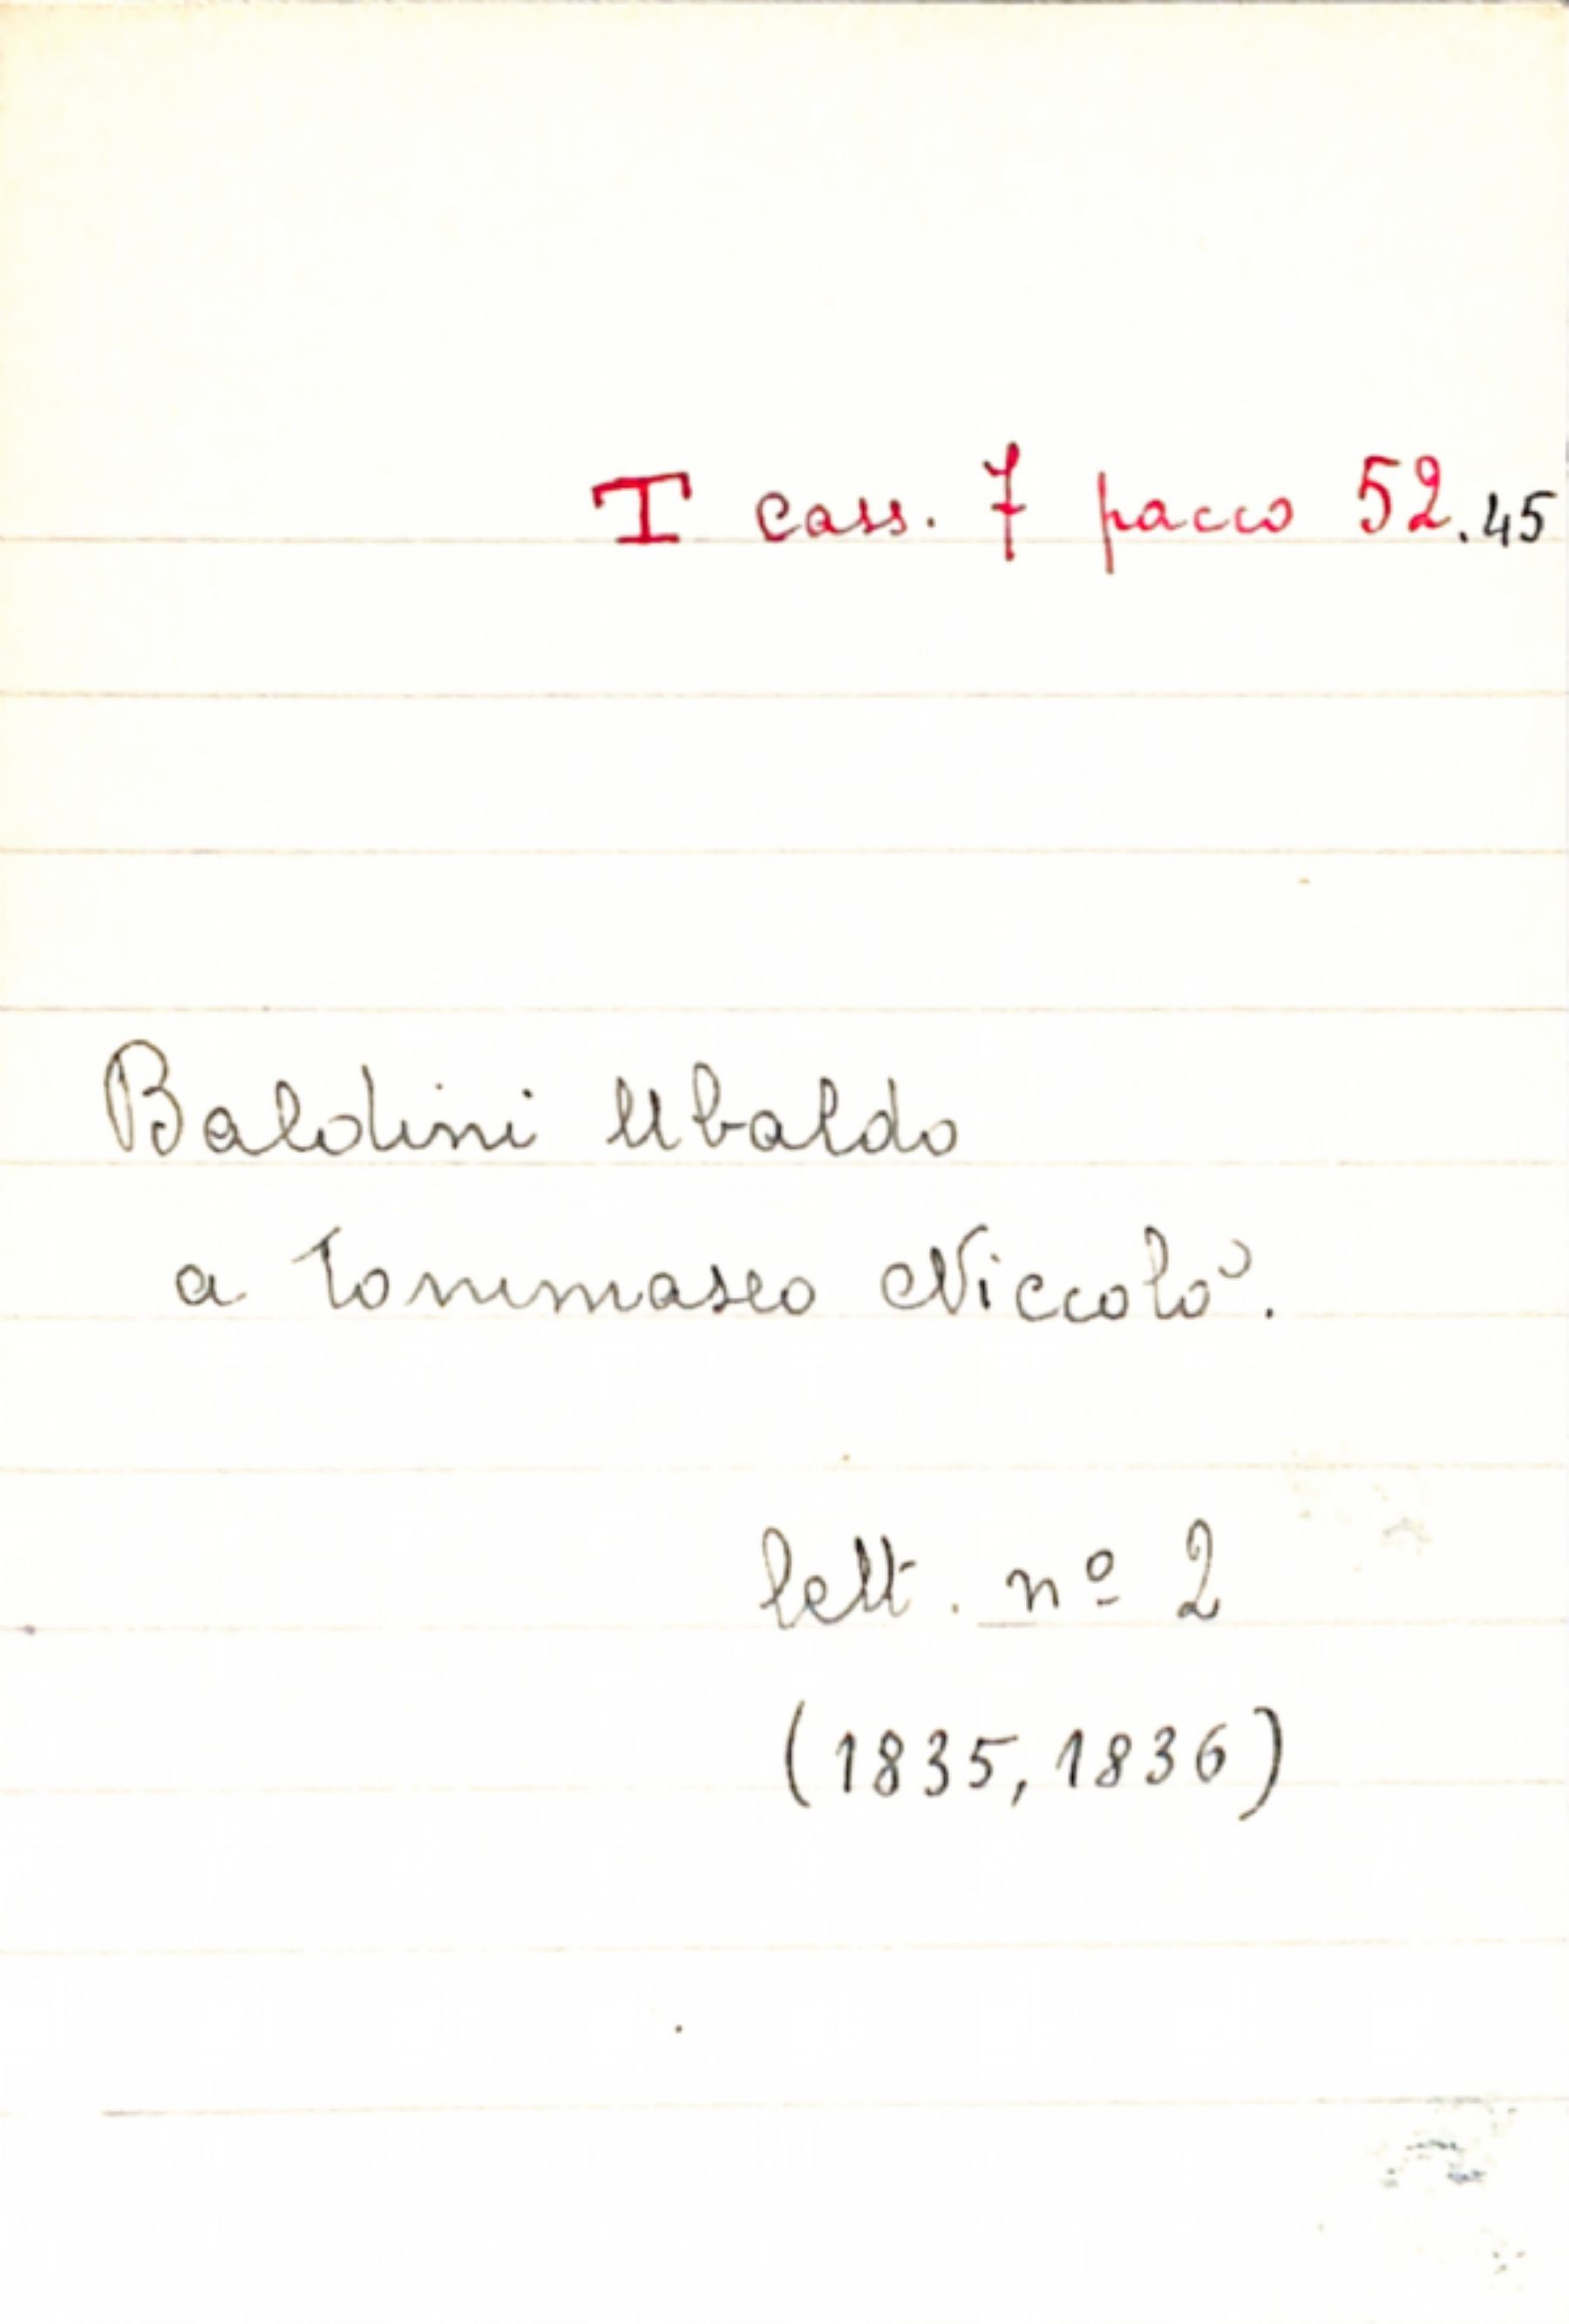 T cass. 7 pacco 52.45
Baldini Ubaldo
a Tommaseo Niccolò.
lett. nº 2
(1835, 1836)